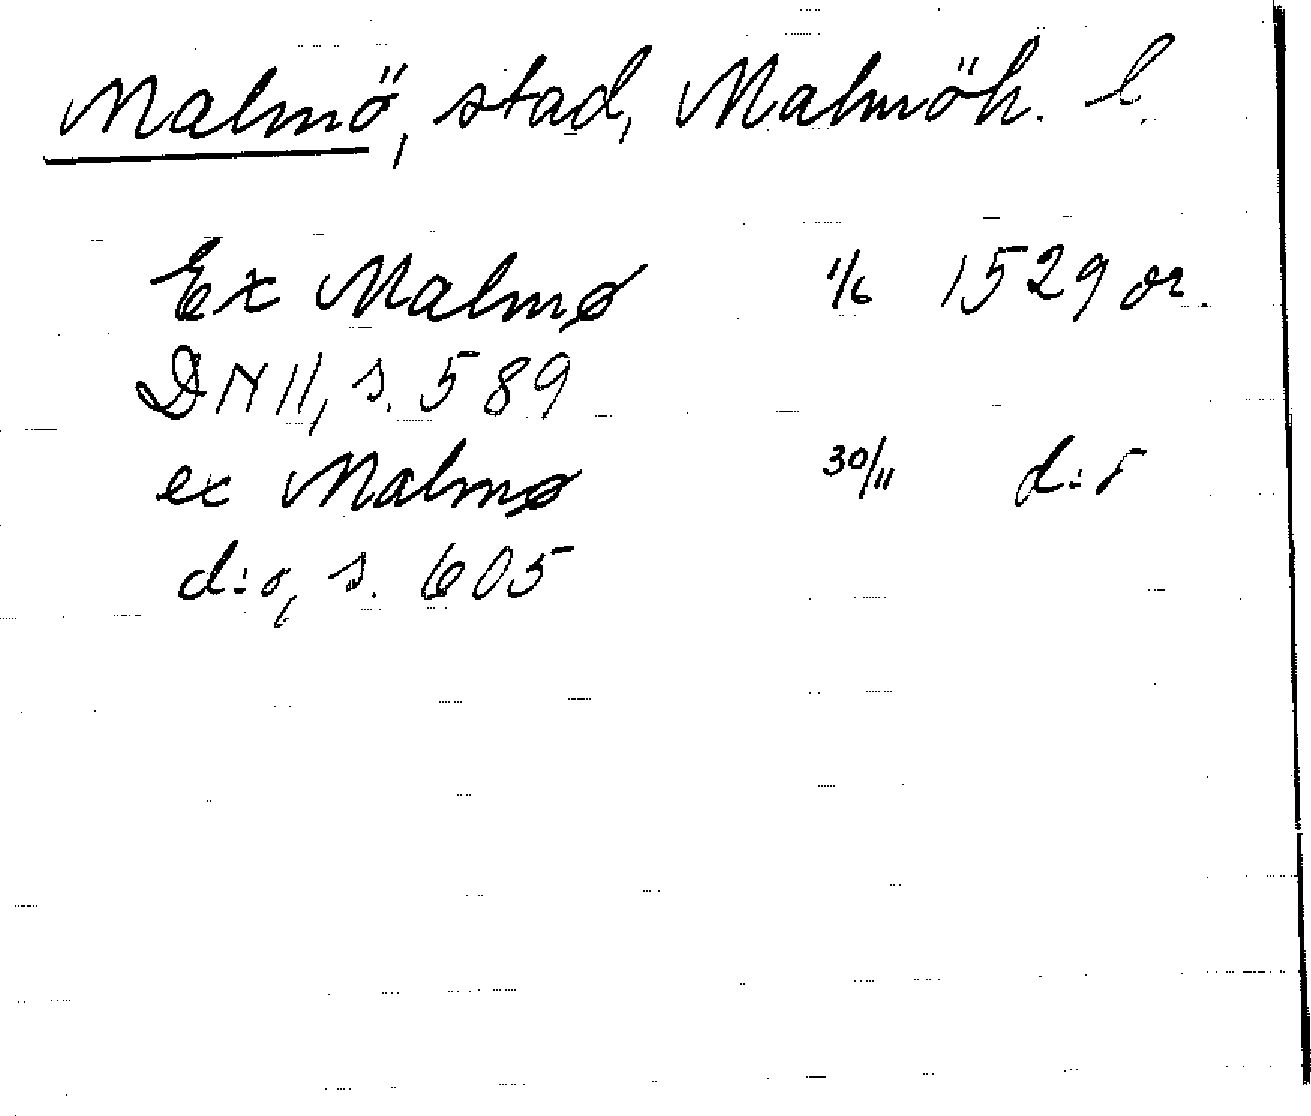 Malmö, stad, Malmöh. l.
Ex Malmø 1/6 1529 or.
DN 11, s. 589
ex Malmø 30/11 d:o
d:o, s. 605